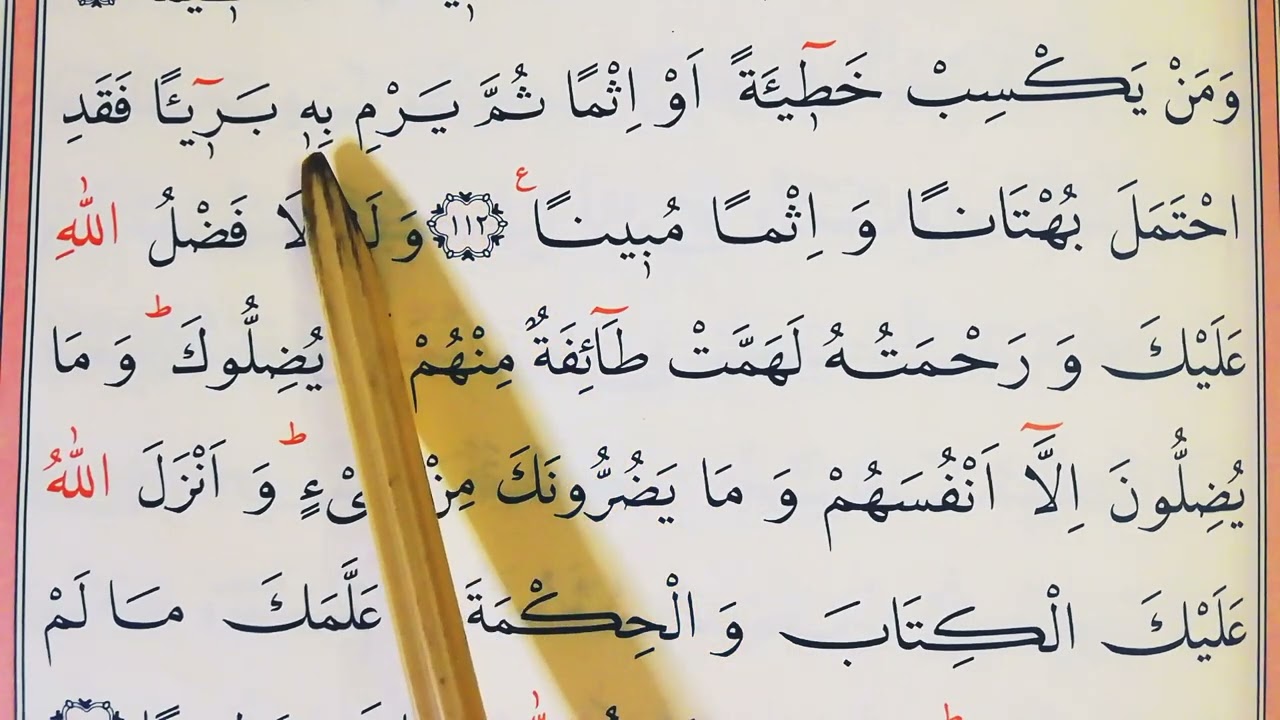 وَمَنْ يَكْسِبْ خَطٖٓيئَةً اَوْ اِثْمًا ثُمَّ يَرْمِ بِهٖ بَرٖٓيئًا فَقَدِ
احْتَمَلَ بُهْتَانًا وَ اِثْمًا مُبٖينًا ع ﴿١١٢﴾ وَ لَوْلَا فَضْلُ اللّٰهِ
عَلَيْكَ وَ رَحْمَتُهُ لَهَمَّتْ طَآئِفَةٌ مِنْهُمْ يُضِلُّوكَ ط وَ مَا
يُضِلُّونَ اِلَّٓا اَنْفُسَهُمْ وَ مَا يَضُرُّونَكَ مِنْ شَىْءٍ ط وَ اَنْزَلَ اللّٰهُ
عَلَيْكَ الْكِتَابَ وَ الْحِكْمَةَ عَلَّمَكَ مَا لَمْ